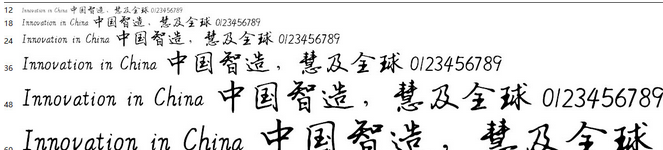 12 Innovation in China 中国智造，慧及全球 0123456789
18 Innovation in China 中国智造，慧及全球 0123456789
24 Innovation in China 中国智造，慧及全球 0123456789
36 Innovation in China 中国智造，慧及全球 0123456789
48 Innovation in China 中国智造，慧及全球 0123456789
60 Innovation in China 中国智造，慧及全球